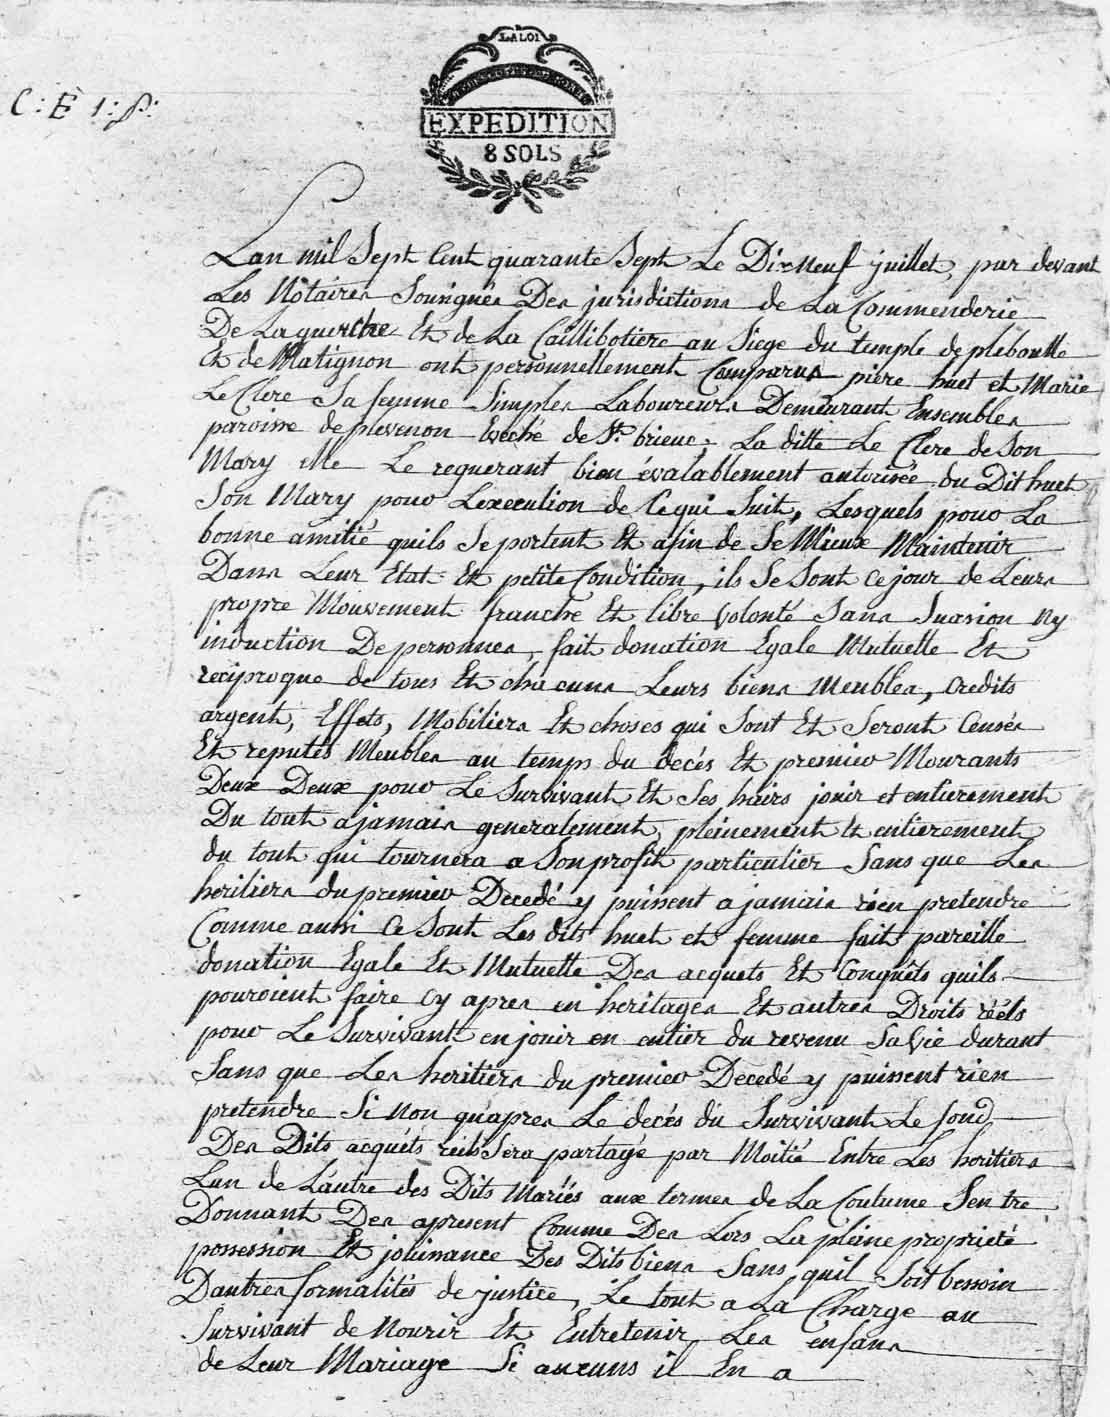 LA LOI
EXPEDITION
8 SOLS
C : E 1 : P :
Lan mil Sept Cent quarante Sept Le Dix neuf juillet, par devant
Les Notaires Sousignés Des jurisdictions de La Commenderie
De Laguerche Et de La Caillibotiere au Siege du temple de pleboulle
Et de Matignon ont personnellement Comparus piere huet et Marie
Le Clerc Sa femme Simples Laboureurs Demeurant Ensembles
paroisse de plevenon Eveché de St. brieuc, La ditte Le Clerc de Son
Mary elle Le requerant bien évalablement autorisée du Dit huet
Son Mary pour Lexecution de Ce qui Suit, Lesquels pour La
bonne amitié quils Se portent Et afin de Se Mieux Maintenir
Dans Leur Etat Et petite Condition, ils Se Sont ce jour de Leurs
propre Mouvement franche Et libre volonté Sans Suasion Ny
induction De personnes, fait donation Egale Mutuelle Et
reciproque de tous Et chacuns Leurs biens Meubles, Credits
argent, Effets, Mobiliers Et choses qui Sont Et Seront Censés
Et reputés Meubles au temps du decés Et premier Mourants
Deux Deux pour Le Survivant Et Ses hairs jouir et entierement
Du tout ajamais generalement, pleinement Et entierement
du tout qui tournera a Son profit particulier Sans que Les
heritiers du premier Decedé y puissent ajamais rien pretendre
Comme aussi Ce Sont Les dits huet et femme fait pareille
donation Egale Et Mutuelle Des acquets Et Conquêts quils
pouroient faire Cy apres en heritages Et autres Droits réels
pour Le Survivant en jouir en entier du revenu Sa vie durant
Sans que Les heritiers du premier Decedé y puissent rien
pretendre Si non qu'apres Le decés du Survivant Le fond
Des Dits acquéts réels Sera partagé par Moitié Entre Les heritiers
Lun de L'autre des Dits Mariés aux termes de La Coutume Sentre
Donnant Des apresent Comme Des Lors La pleine propriété
possession Et jouissance Des Dits biens Sans quil Soit bessoin
Dautres formalités de justice, Le tout a La Charge au
Survivant de Nourir Et Entretenir Les enfans
de Leur Mariage Si aucuns il En a